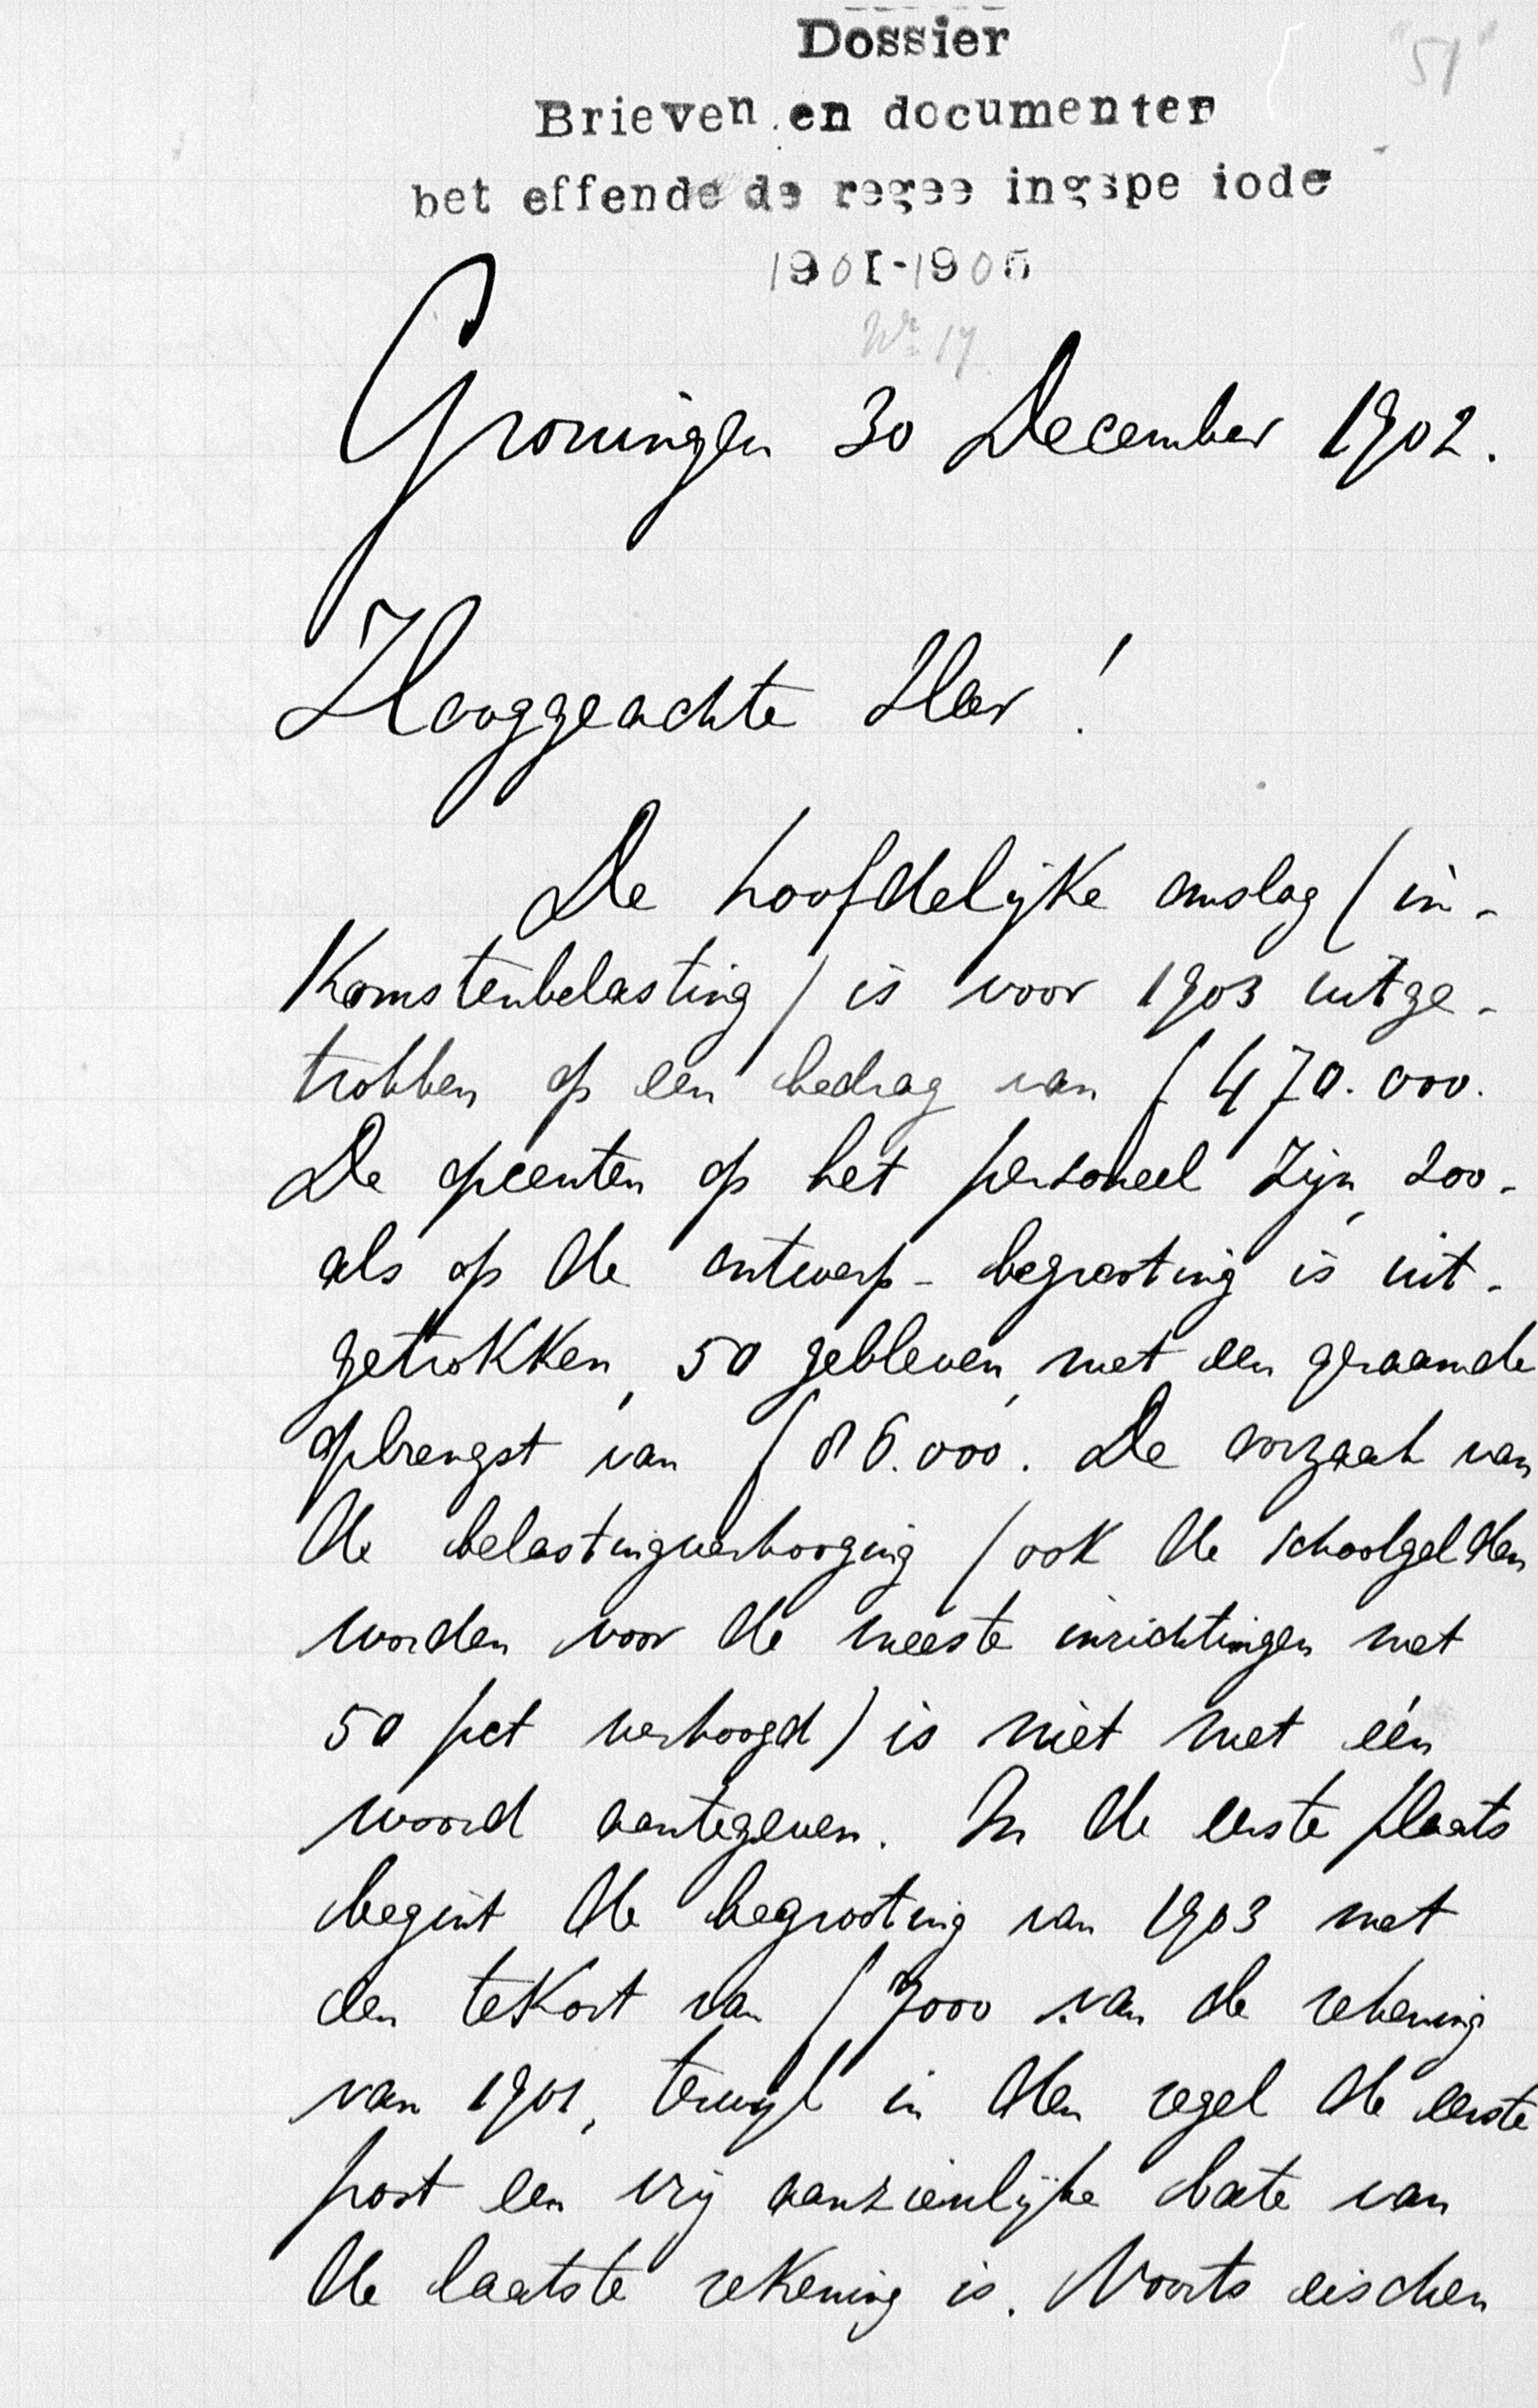 Dossier
"51"
Brieven en documenten
betreffende de regeeringsperiode
1901-1905
Nr 17
Groningen 30 December 1902.
Hooggeachte Heer!
De hoofdelijke omslag (in-
komstenbelasting) is voor 1903 uitge-
trokken op een bedrag van f 470.000.
De opcenten op het personeel zijn, zoo-
als op de ontwerp-begrooting is uit-
getrokken, 50 gebleven, met een geraamde
opbrengst van f 86.000. De oorzaak van
de belastingverhooging (ook de schoolgelden
worden voor de meeste inrichtingen met
50 pct verhoogd) is niet met één
woord aantegeven. In de eerste plaats
begint de begrooting van 1903 met
den tekort van f 7000 van de rekening
van 1901, terwijl in den regel de eerste
post een vrij aanzienlijke bate van
de laatste rekening is. Voorts eischen